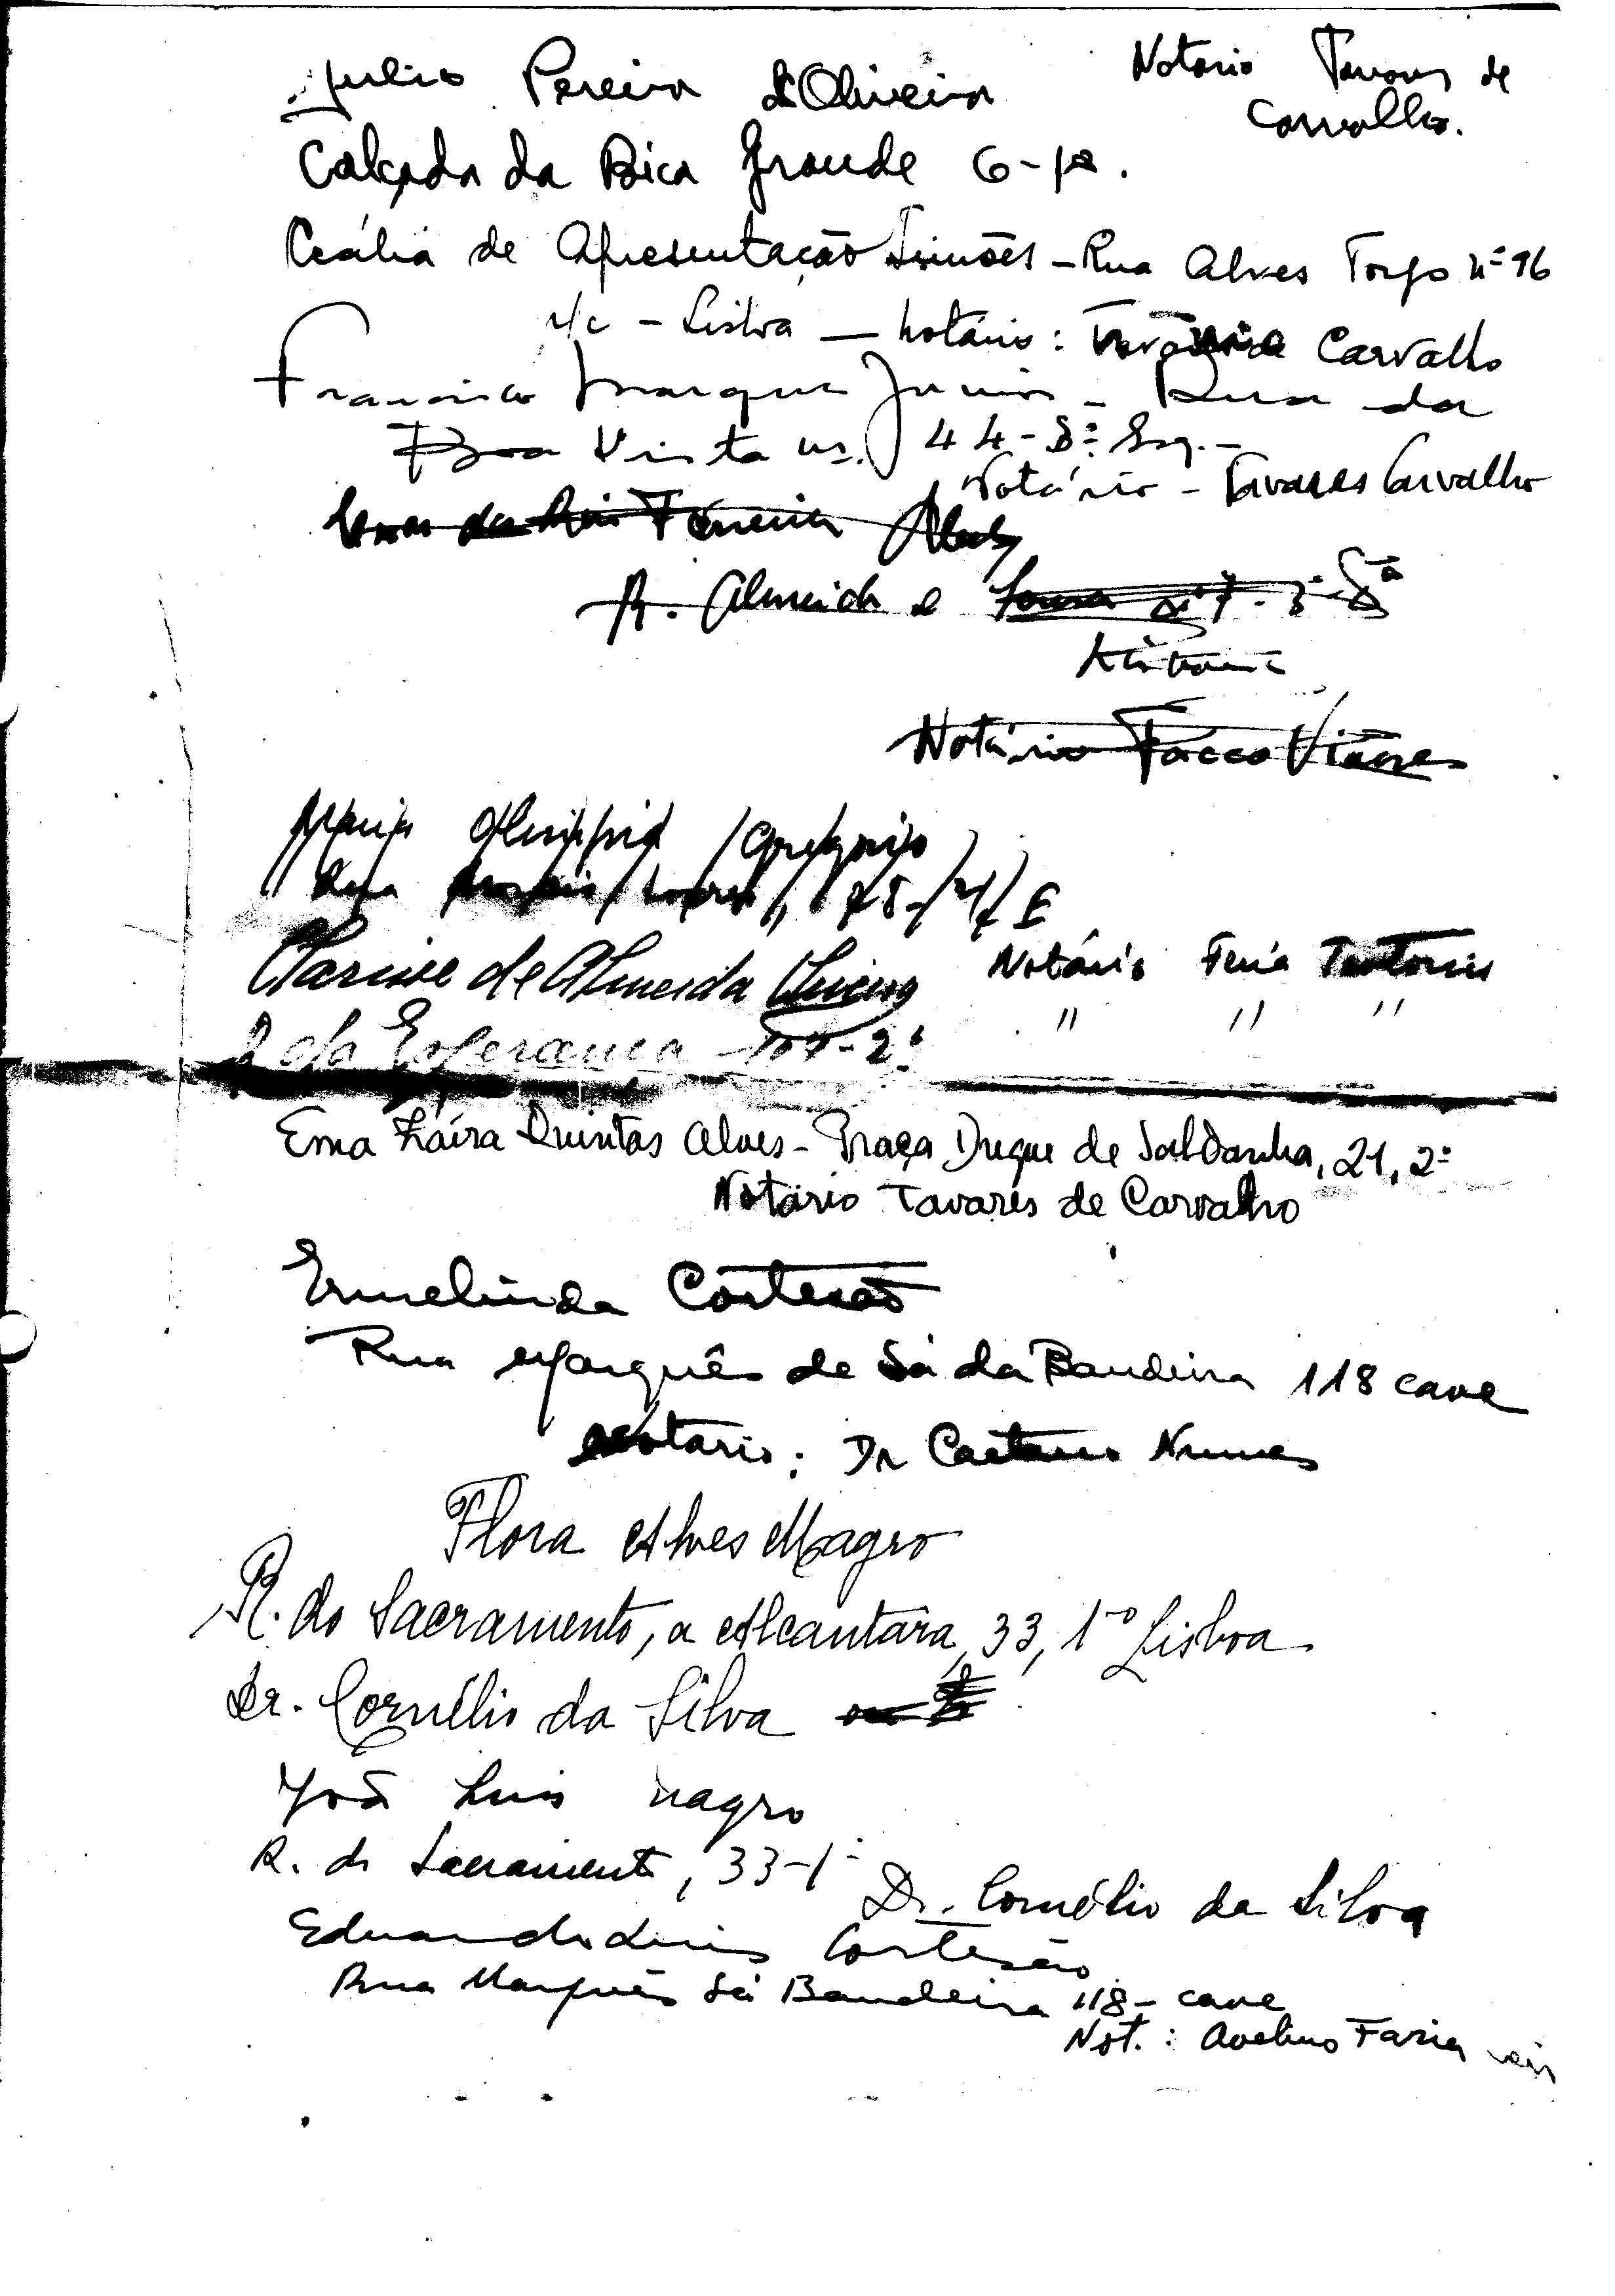 Julio Pereira d'Oliveira
Notario Tavares de
Carvalho.
Calçada da Bica Grande 6-1º.
Cecália de Apresentação Simões - Rua Alves Torgo nº 16
r/c - Lisboa - Notário: Tavares de Carvalho
Francisco Marques Junior - Rua da
Boa Vista nº. 44-3º Esq.-
Notário - Tavares Carvalho
da Ferreira
R. Almeida e Sousa nº 7-3º
Lisboa
Notário
Maria Olimpia Gregorio
Rua 75-
Clarisse de Almeida
Notário
R da Esperança 107-2º
" " "
Ema Zaíra Quintas Alves - Praça Duque de Saldanha, 21, 2º
Notário Tavares de Carvalho
Ermelinda Cortesão
Rua Marquês de Sá da Bandeira 118 cave
Notario: Dr Caetano Nunes
Flora Alves Magro
R. do Sacramento, a Alcantara, 33, 1º Lisboa
Dr. Cornélio da Silva
João Luis Magro
R. do Sacramento, 33-1º
Dr. Cornélio da Silva
Eduardo Luis Cortesão
Rua Marquês Sá Bandeira 118- cave
Not.: Avelino Faria